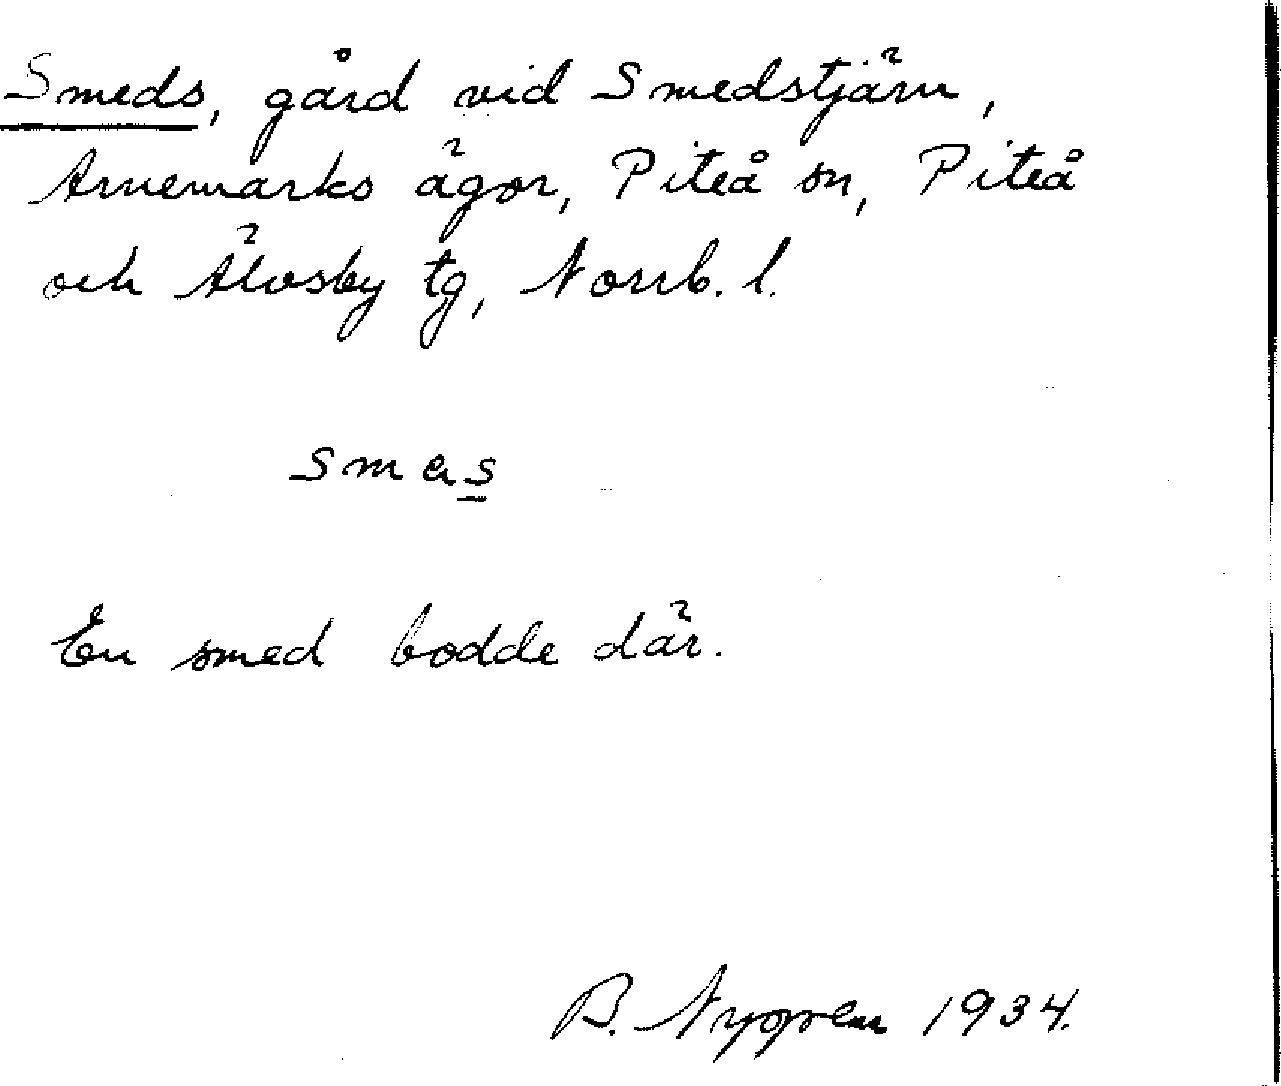 Smeds, gård vid Smedstjärn,
Arnemarks ägor, Piteå sn, Piteå
och Älvsby tg, Norrb. l.
smɛs
En smed bodde där.
B. Nygren 1934.